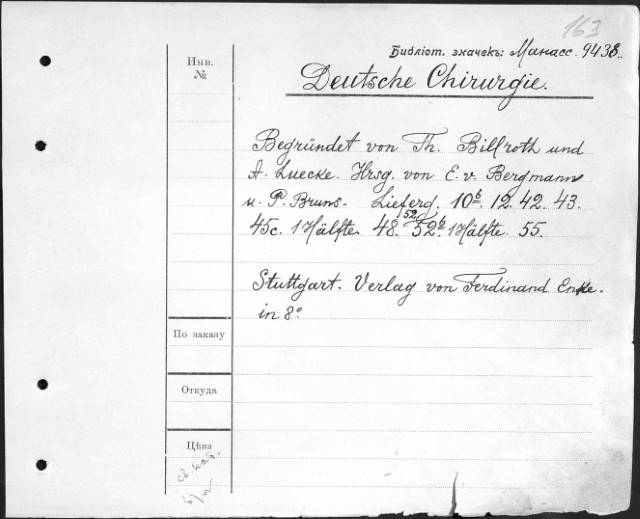 163
Библіот. значекъ: Манасс. 9438.
Инв.
№
Deutsche Chirurgie.
Begründet von Th. Billroth und
A. Luecke. Hrsg. von E. v. Bergmann
u. P. Bruns. Lieferg. 10b. 12. 42. 43.
45c. 1 Hälfte. 48. 52 52b. 1 Hälfte. 55.
Stuttgart. Verlag von Ferdinand Enke.
in 8°
По заказу
Откуда
Цѣна
св. каб.
б/ц